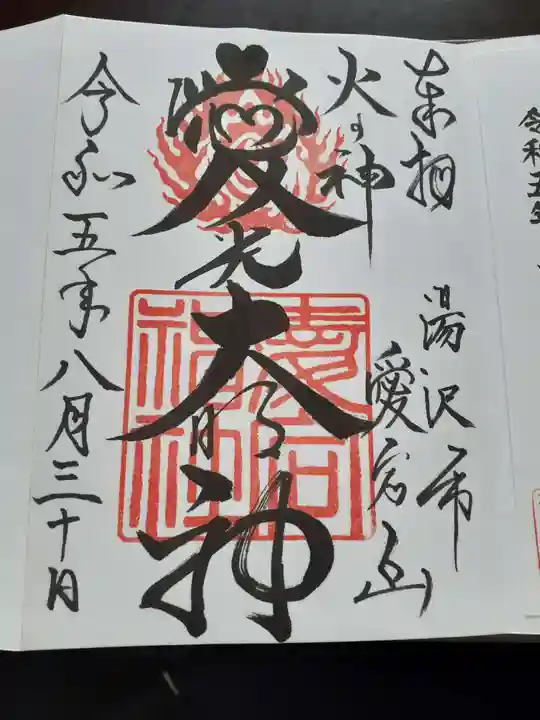 令和五年
奉拝
湯沢市
愛宕山
火の神
愛宕大明神
愛宕神社
令和五年八月三十日